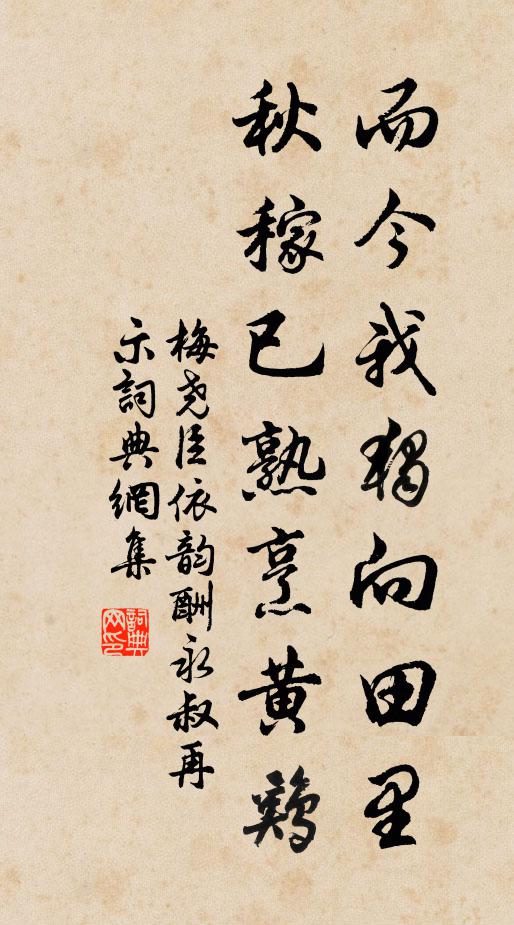 而今我独向田里
秋稼已熟烹黄鷄
梅尧臣依韵酬永叔再
示詞典網集
詞典
网印